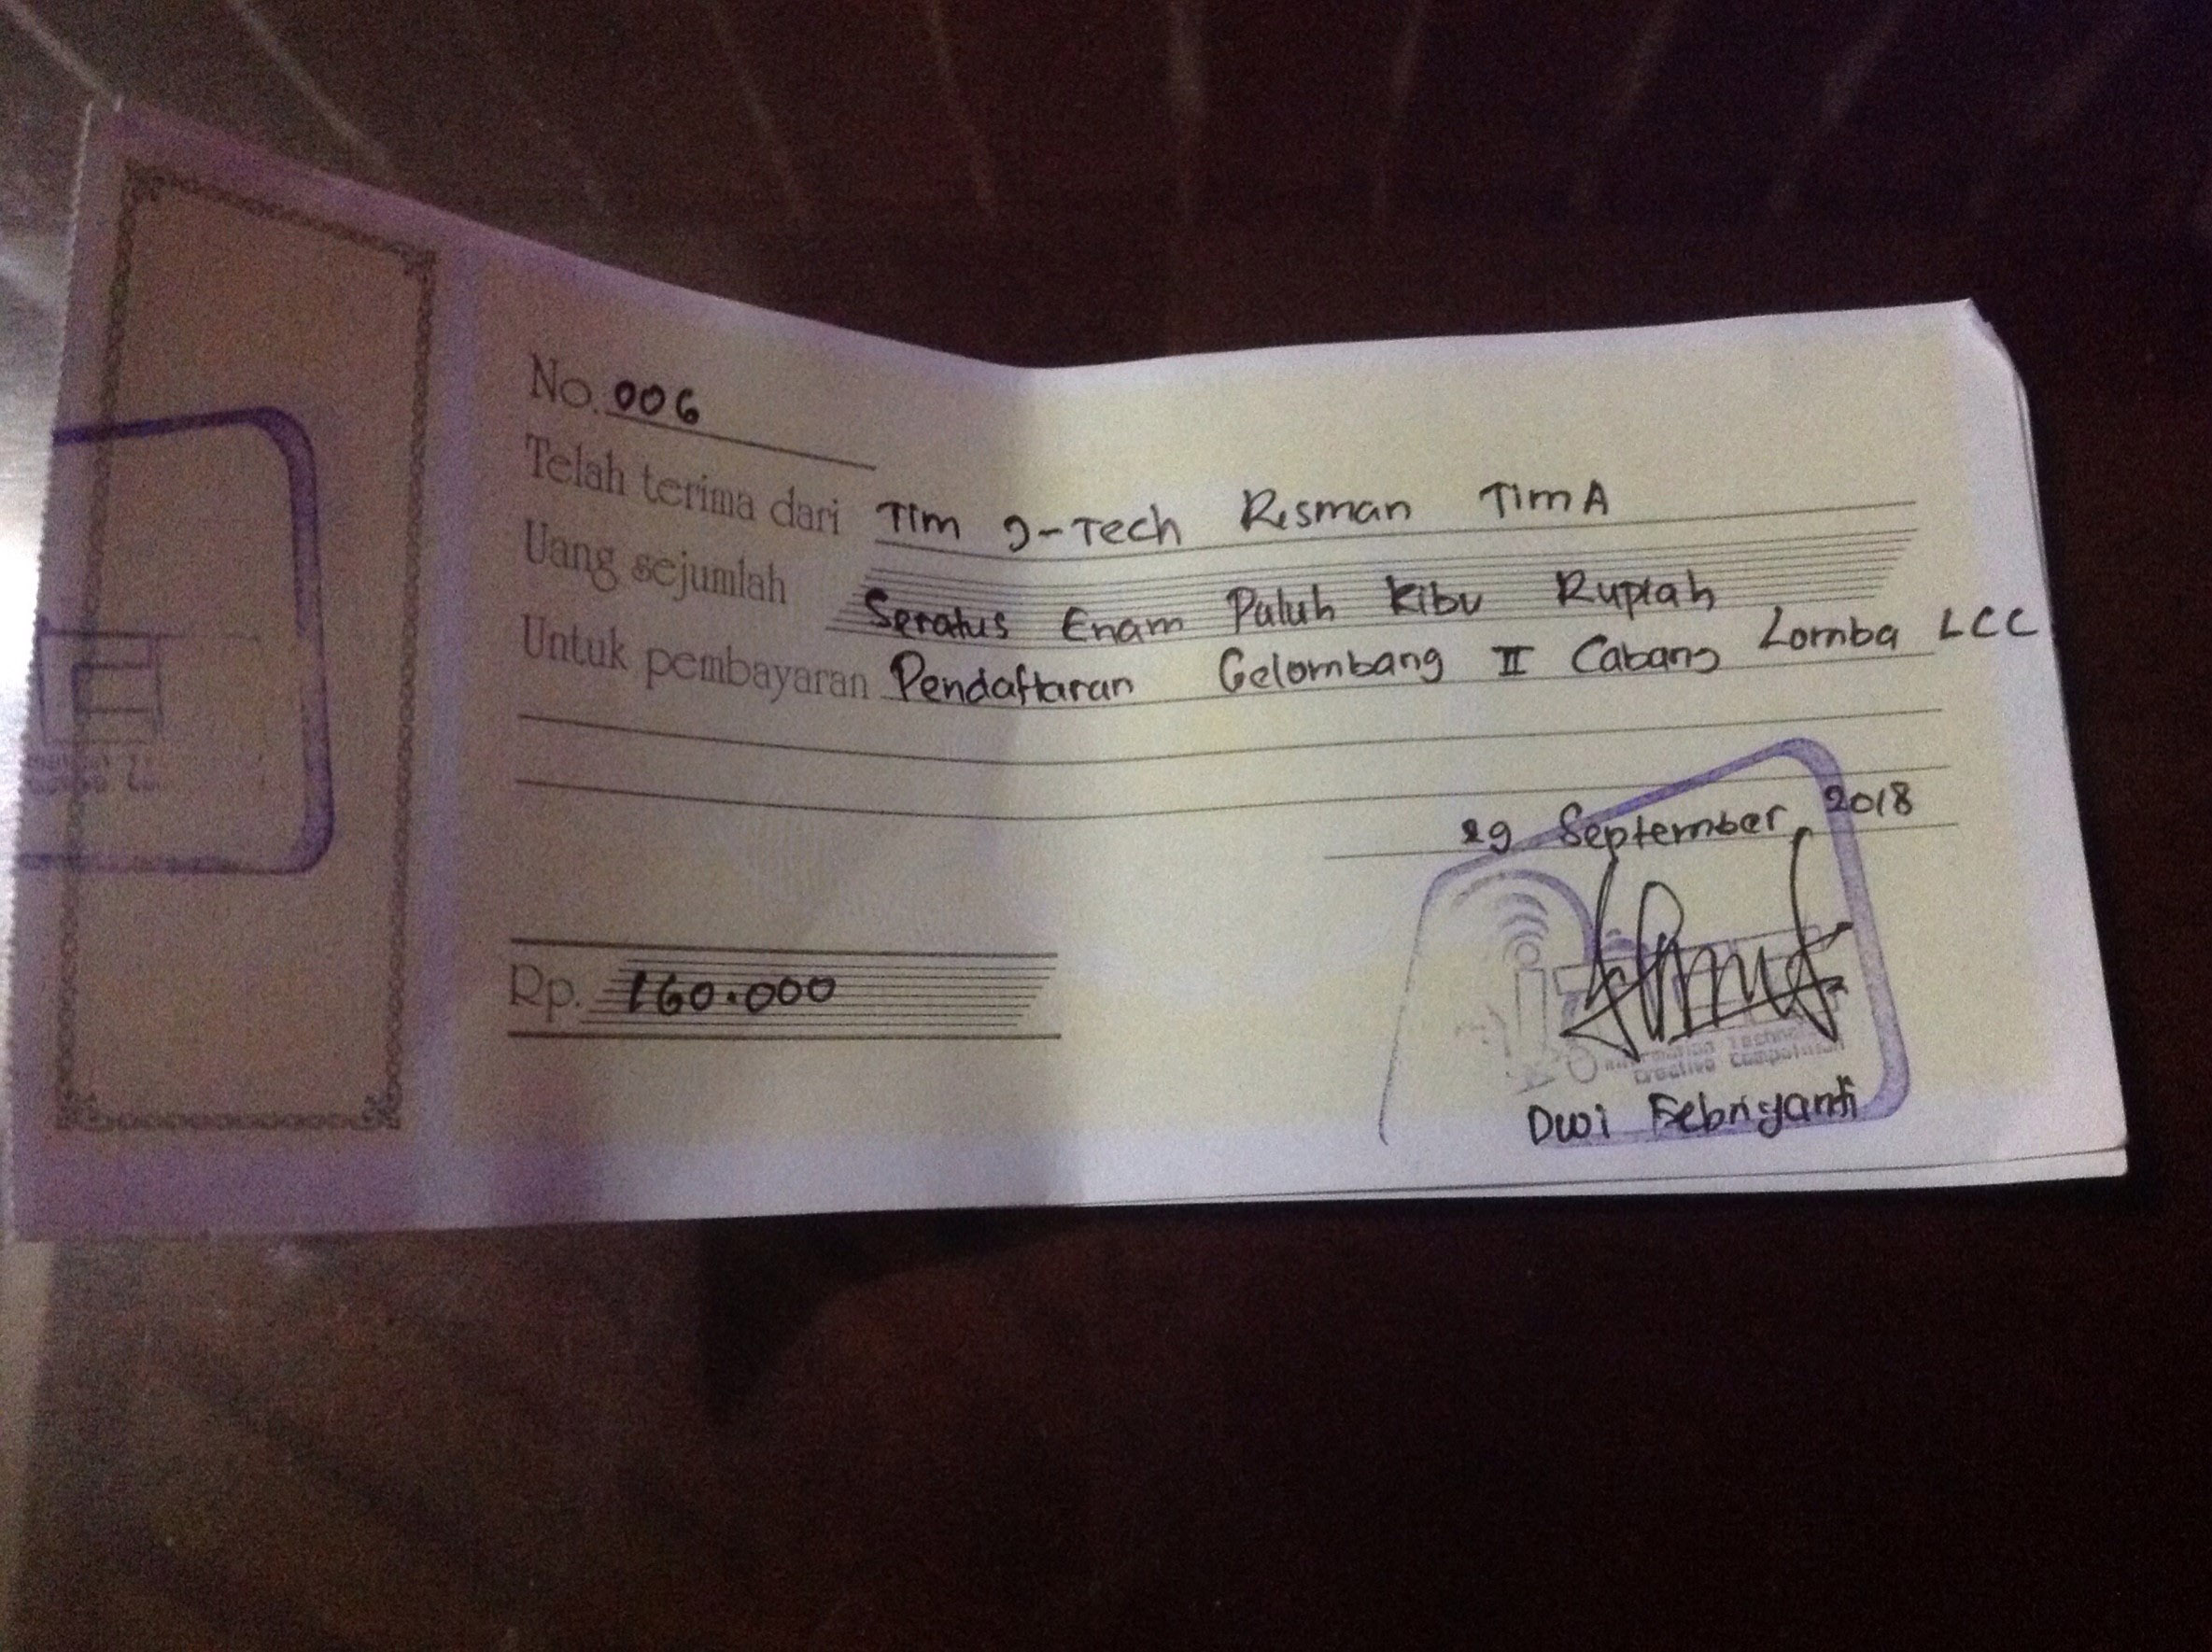 No. 006
Telah terima dari Tim J-Tech Risman Tim A
Uang sejumlah Seratus Enam Puluh Ribu Rupiah
Untuk pembayaran Pendaftaran Gelombang II Cabang Lomba LCC
29 September, 2018
Rp. 160.000
Information Techno
Creative Competition
Dwi Febriyanti